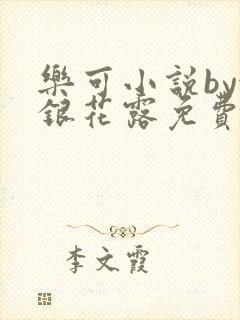 樂可小說by
銀花露免費
李文霞